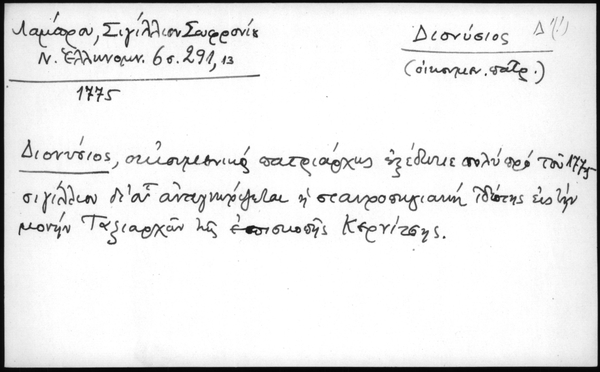 Λάμπρου, Σιγίλλιον Σωφρονίου
Ν. Ἑλληνομν. 6 σ. 291, 13
1775
Διονύσιος
(οἰκουμεν. πατρ.)
Διονύσιος, οἰκουμενικός πατριάρχης ἐξέδωκε πολύ πρό τοῦ 1775
σιγίλλιον δι' οὗ ἀναγνωρίζεται ἡ σταυροπηγιακή ἰδιότης εἰς τήν
μονήν Ταξιαρχῶν τῆς ἐπισκοπῆς Κερνίτσης.